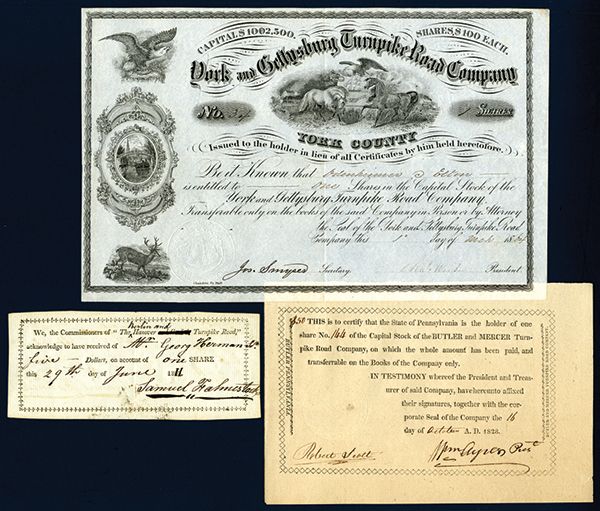 CAPITAL $ 1002,500. SHARES, $ 100 EACH.
York and Gettysburg Turnpike Road Company
No. Shares
YORK COUNTY
(Issued to the holder in lieu of all Certificates by him held heretofore.)
Be it Known that
is entitled to One Shares in the Capital Stock of the
York and Gettysburg Turnpike Road Company.
Transferable only on the books of the said Company in Person or by Attorney
the Seal of the York and Gettysburg Turnpike Road
Company this 1st day of 18
Jos. Smyser Secretary President
Berlin and
We, the Commissioners of "The Hanover Turnpike Road,"
acknowledge to have received of Mr. Georg Herman
five — Dollars, on account of one SHARE
this 29th day of June 1811
Samuel Fahnestock
$50 THIS is to certify that the State of Pennsylvania is the holder of one
share No. 164 of the Capital Stock of the BUTLER and MERCER Turn-
pike Road Company, on which the whole amount has been paid, and
transferrable on the Books of the Company only.
IN TESTIMONY whereof the President and Treas-
urer of said Company, have hereunto affixed
their signatures, together with the cor-
porate Seal of the Company the 16
day of October A. D. 1828.
Robert Scott Wm Ayres Prest